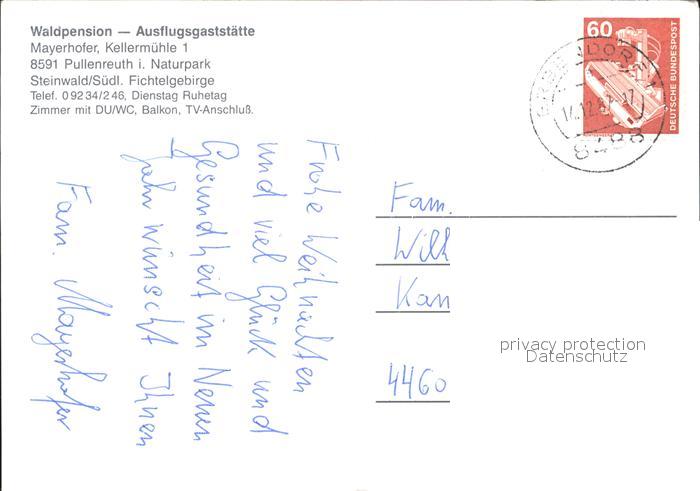 Waldpension — Ausflugsgaststätte
Mayerhofer, Kellermühle 1
8591 Pullenreuth i. Naturpark
Steinwald/Südl. Fichtelgebirge
Telef. 09234/246, Dienstag Ruhetag
Zimmer mit DU/WC, Balkon, TV-Anschluß.
60
DEUTSCHE BUNDESPOST
8488
Frohe Weihnachten
und viel Glück und
Gesundheit im Neuen
Jahr wünscht Ihnen
Fam. Mayerhofer
Fam.
Wilh
Kan
4460
privacy protection
Datenschutz